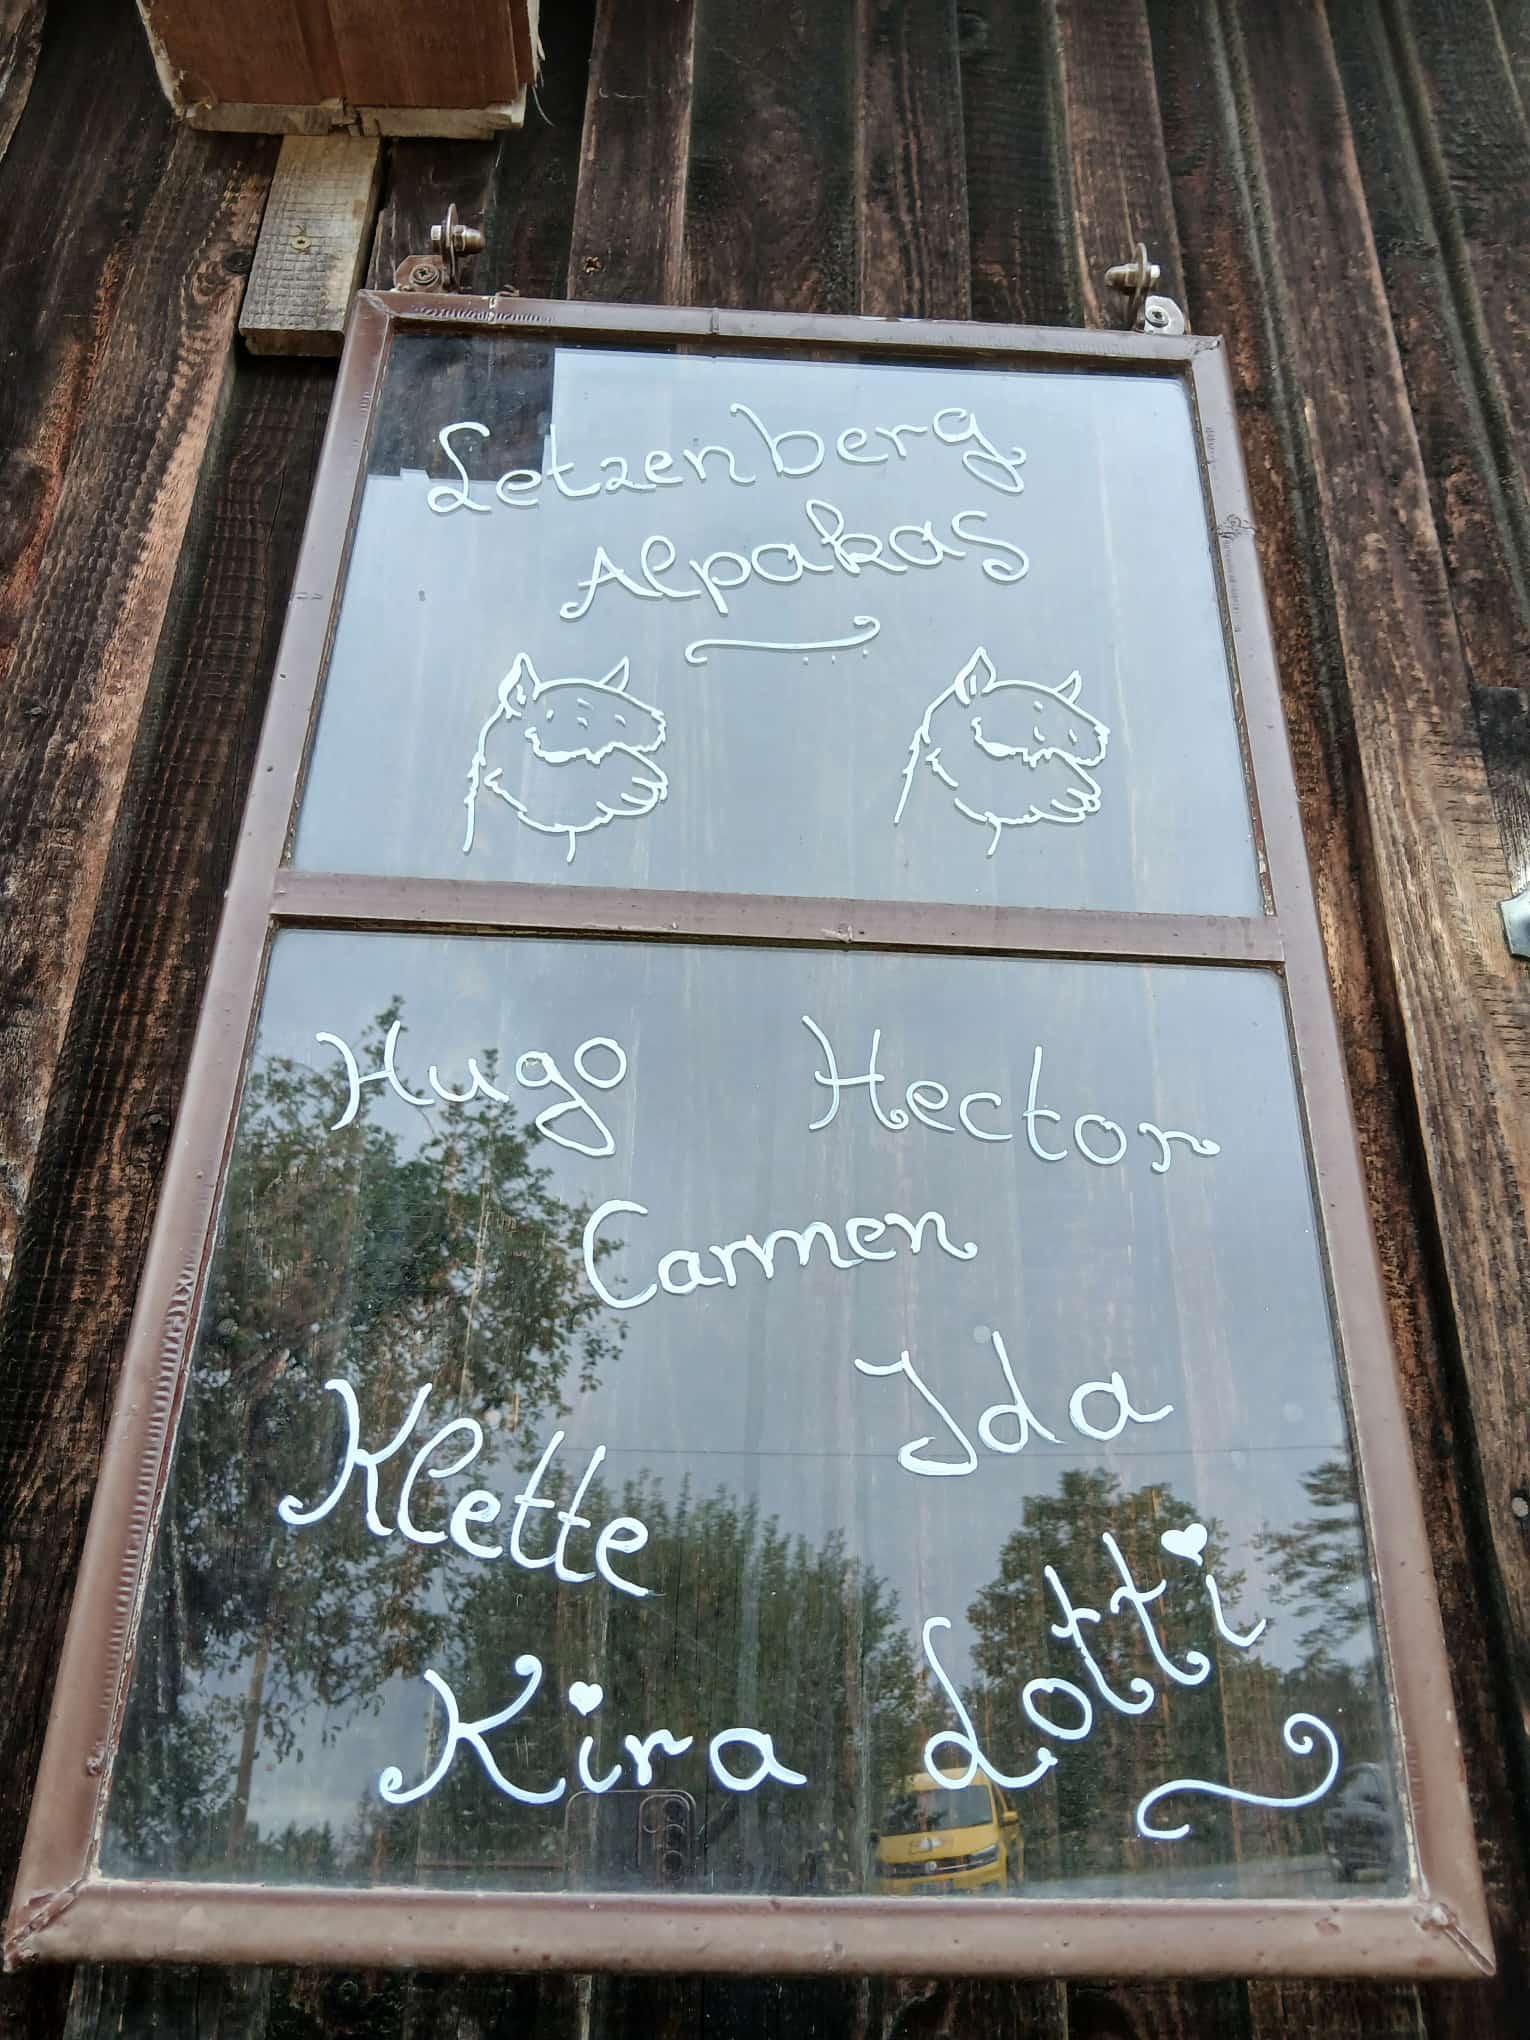 Letzenberg
Alpakas
Hugo Hector
Carmen
Klette Ida
Kira Lotti